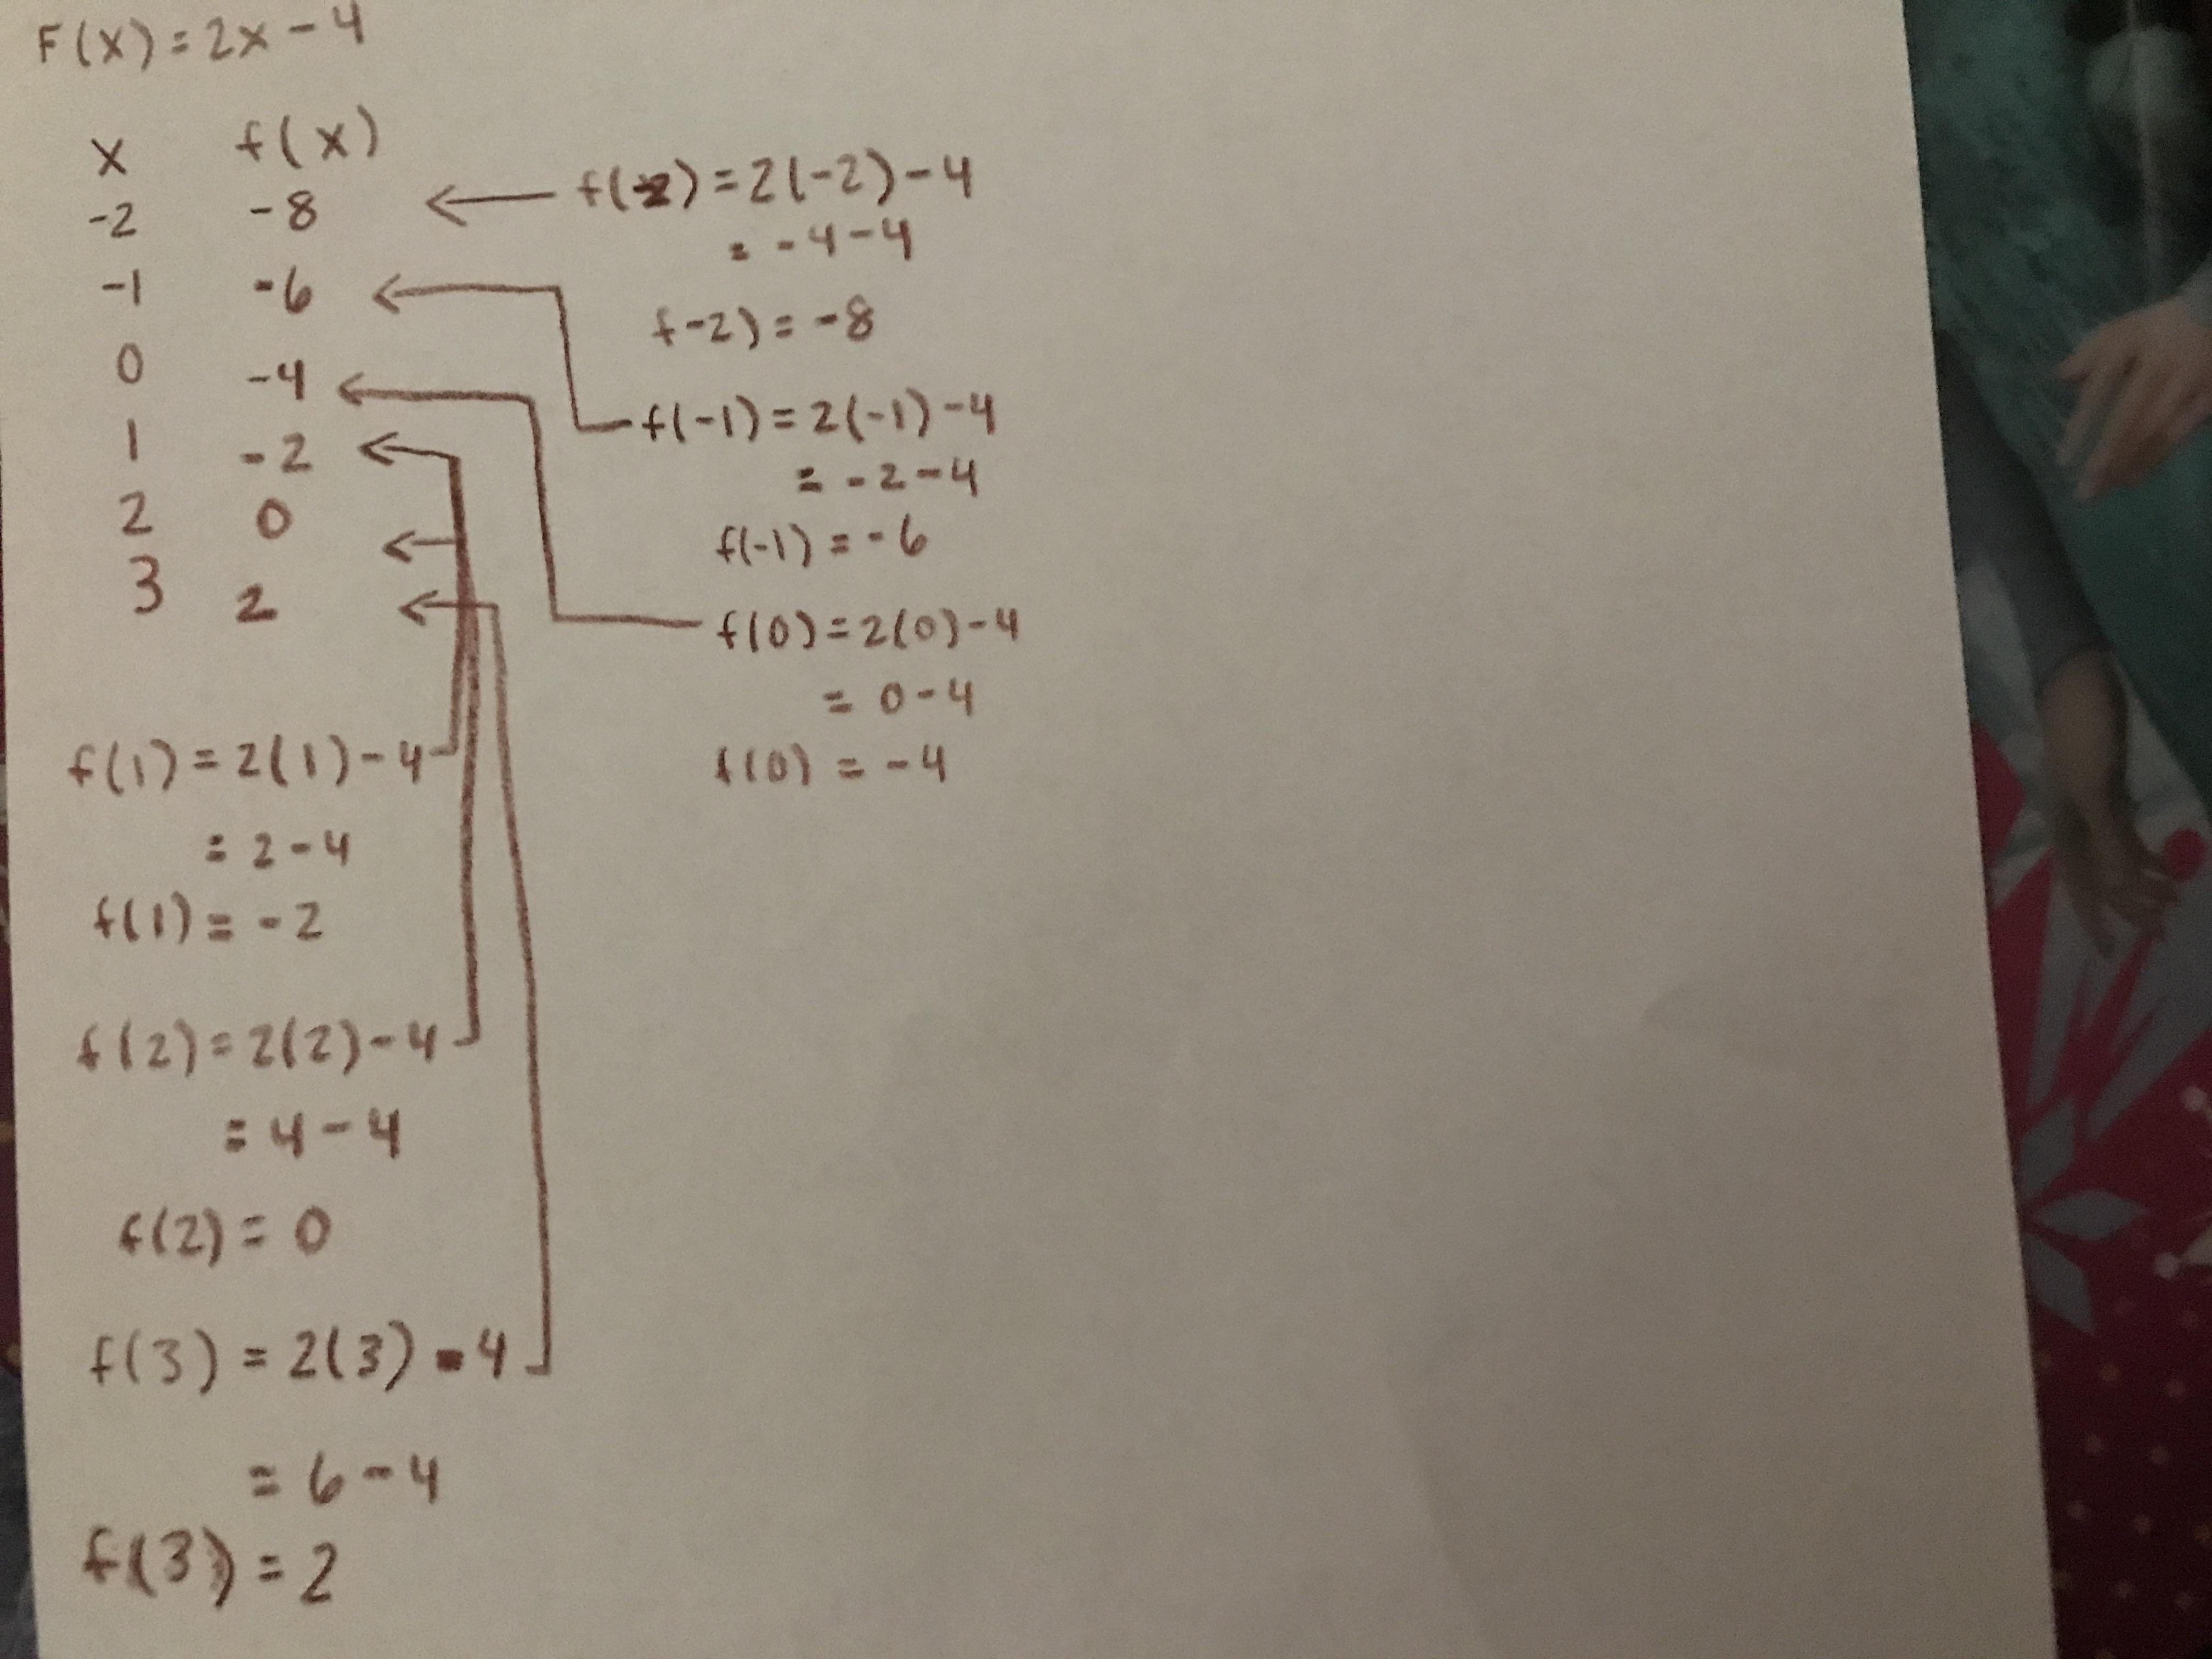 F(x) = 2x - 4
x f(x)
-2 -8
-1 -6
0 -4
1 -2
2 0
3 2
f(-2) = 2(-2) - 4
= -4 - 4
f-2) = -8
f(-1) = 2(-1) - 4
= -2 - 4
f(-1) = -6
f(0) = 2(0) - 4
= 0 - 4
f(0) = -4
f(1) = 2(1) - 4
= 2 - 4
f(1) = -2
f(2) = 2(2) - 4
= 4 - 4
f(2) = 0
f(3) = 2(3) - 4
= 6 - 4
f(3) = 2